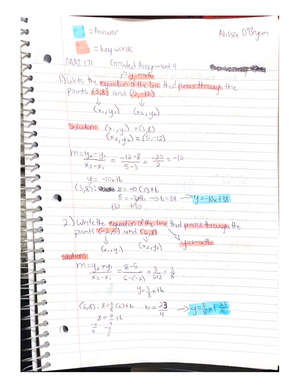 = Answer Alissa O'Bryen
= key words
MAT 171 Graded Assignment 4
y=mx+b
1) Write the equation of the line that passes through the
points (3,8) and (5,-12)
(x₁, y₁) (x₂, y₂)
Solution: (x₁, y₁) = (3,8)
(x₂, y₂) = (5,-12)
m = y₂-y₁ / x₂-x₁ = -12-8 / 5-3 = -20 / 2 = -10
y = -10x+b
(3,8): 8 = -10(3)+b
8 = -30+b → b=38 → y=-10x+38
+30 +30
2) Write the equation of the line that passes through the
points (-2,5) and (6,8)
(x₁, y₁) (x₂, y₂) y=mx+b
Solution:
m = y₂-y₁ / x₂-x₁ = 8-5 / 6-(-2) = 3 / 6+2 = 3/8
y = 3/8 x+b
(6,8): 8 = 3/8 (6)+b b = 23/4 → y = 3/8 x + 23/4
8 = 9/4 + b